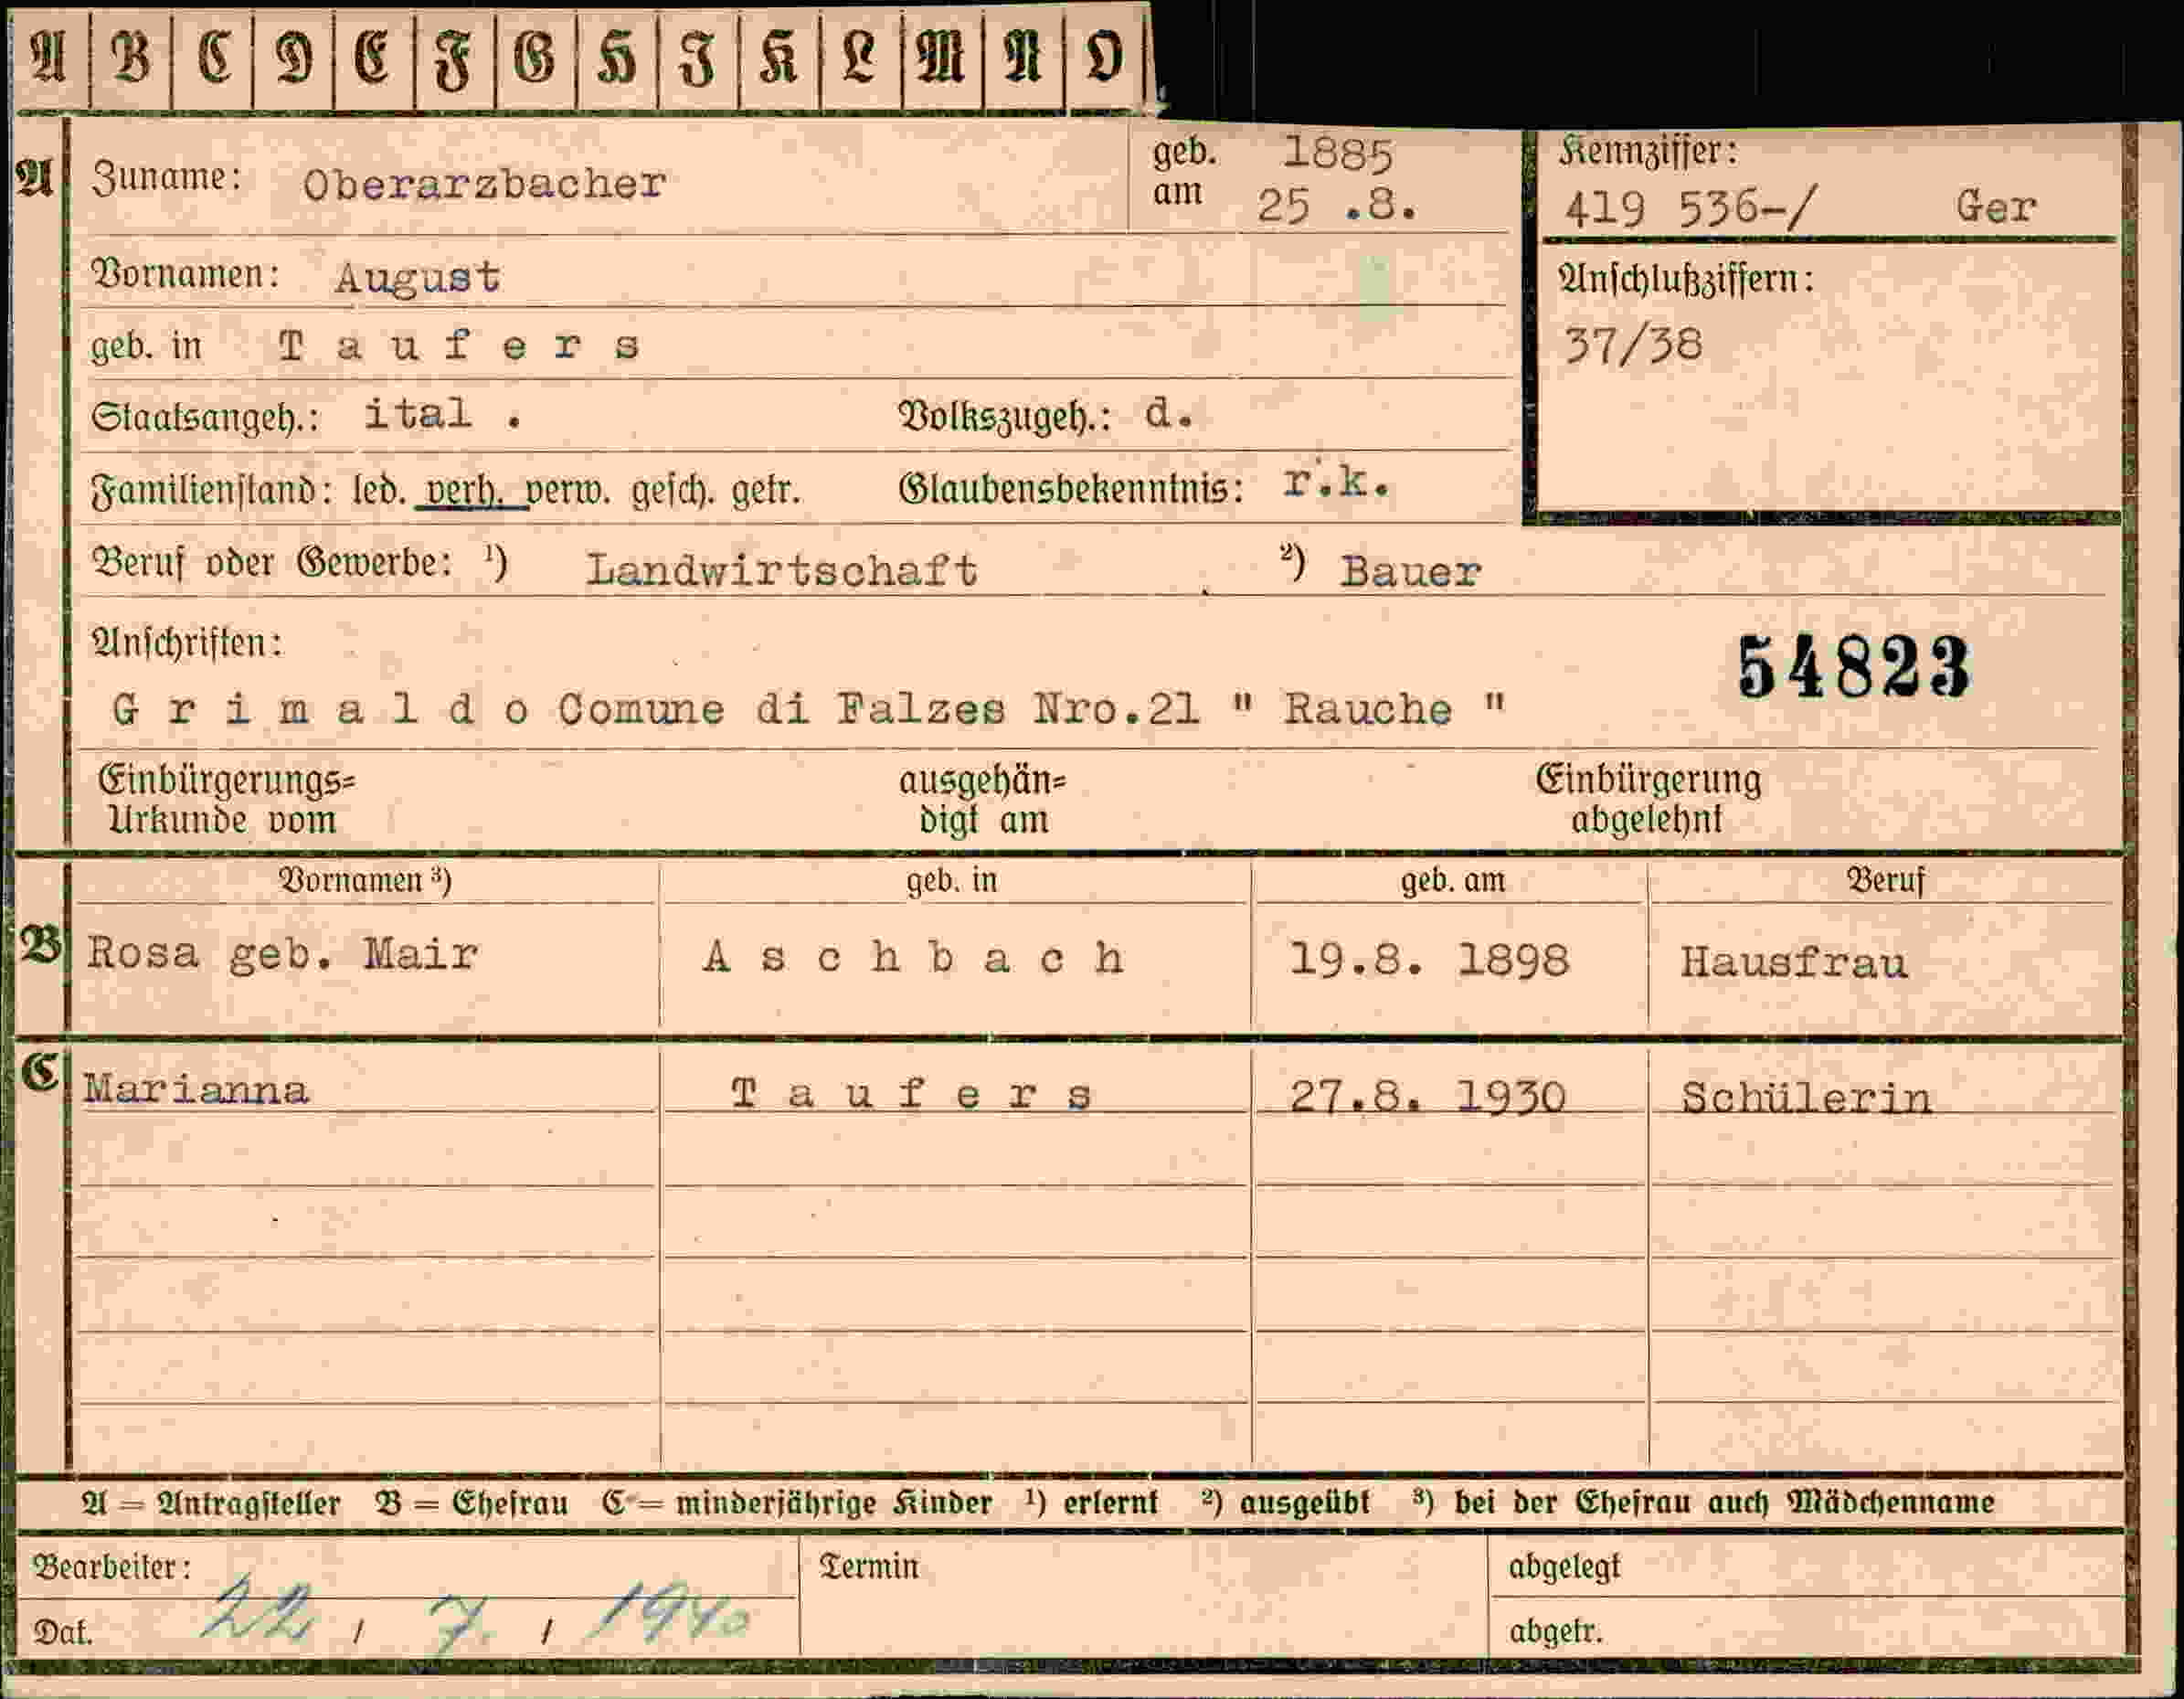 A B C D E F G H I K L M N O
A Zuname: Oberarzbacher geb. am 1885 25 .8.
Kennziffer: 419 536-/ Ger
Vornamen: August
Anschlußziffern: 37/38
geb. in Taufers
Staatsangeh.: ital . Volkszugeh.: d.
Familienstand: led. verh. verw. gesch. getr. Glaubensbekenntnis: r.k.
Beruf oder Gewerbe: ¹) Landwirtschaft ²) Bauer
Anschriften:
54823
Grimaldo Comune di Falzes Nro.21 " Rauche "
Einbürgerungs= ausgehän= Einbürgerung
Urkunde vom digt am abgelehnt
Vornamen ³) geb. in geb. am Beruf
B Rosa geb. Mair Aschbach 19.8. 1898 Hausfrau
C Marianna Taufers 27.8. 1930 Schülerin
A = Antragsteller B = Ehefrau C = minderjährige Kinder ¹) erlernt ²) ausgeübt ³) bei der Ehefrau auch Mädchenname
Bearbeiter: Termin abgelegt
Dat. 22 / 7. / 1940 abgetr.